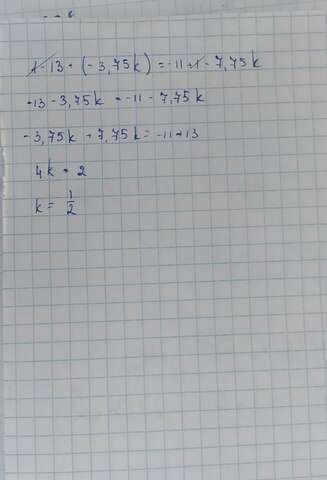 1 - 13 + (-3,75k) = -11 + 1 - 7,75k
-13 - 3,75k = -11 - 7,75k
-3,75k + 7,75k = -11 + 13
4k = 2
k = 1/2